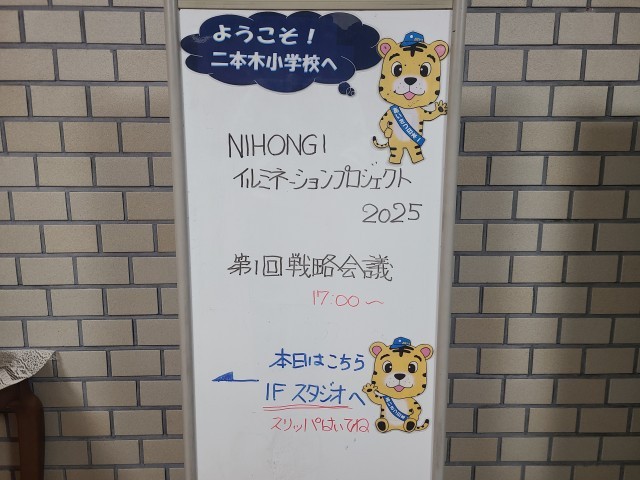 ようこそ!
二本木小学校へ
NIHONGI
イルミネーションプロジェクト
2025
第1回戦略会議
17:00〜
本日はこちら
1F スタジオへ
スリッパはいてね